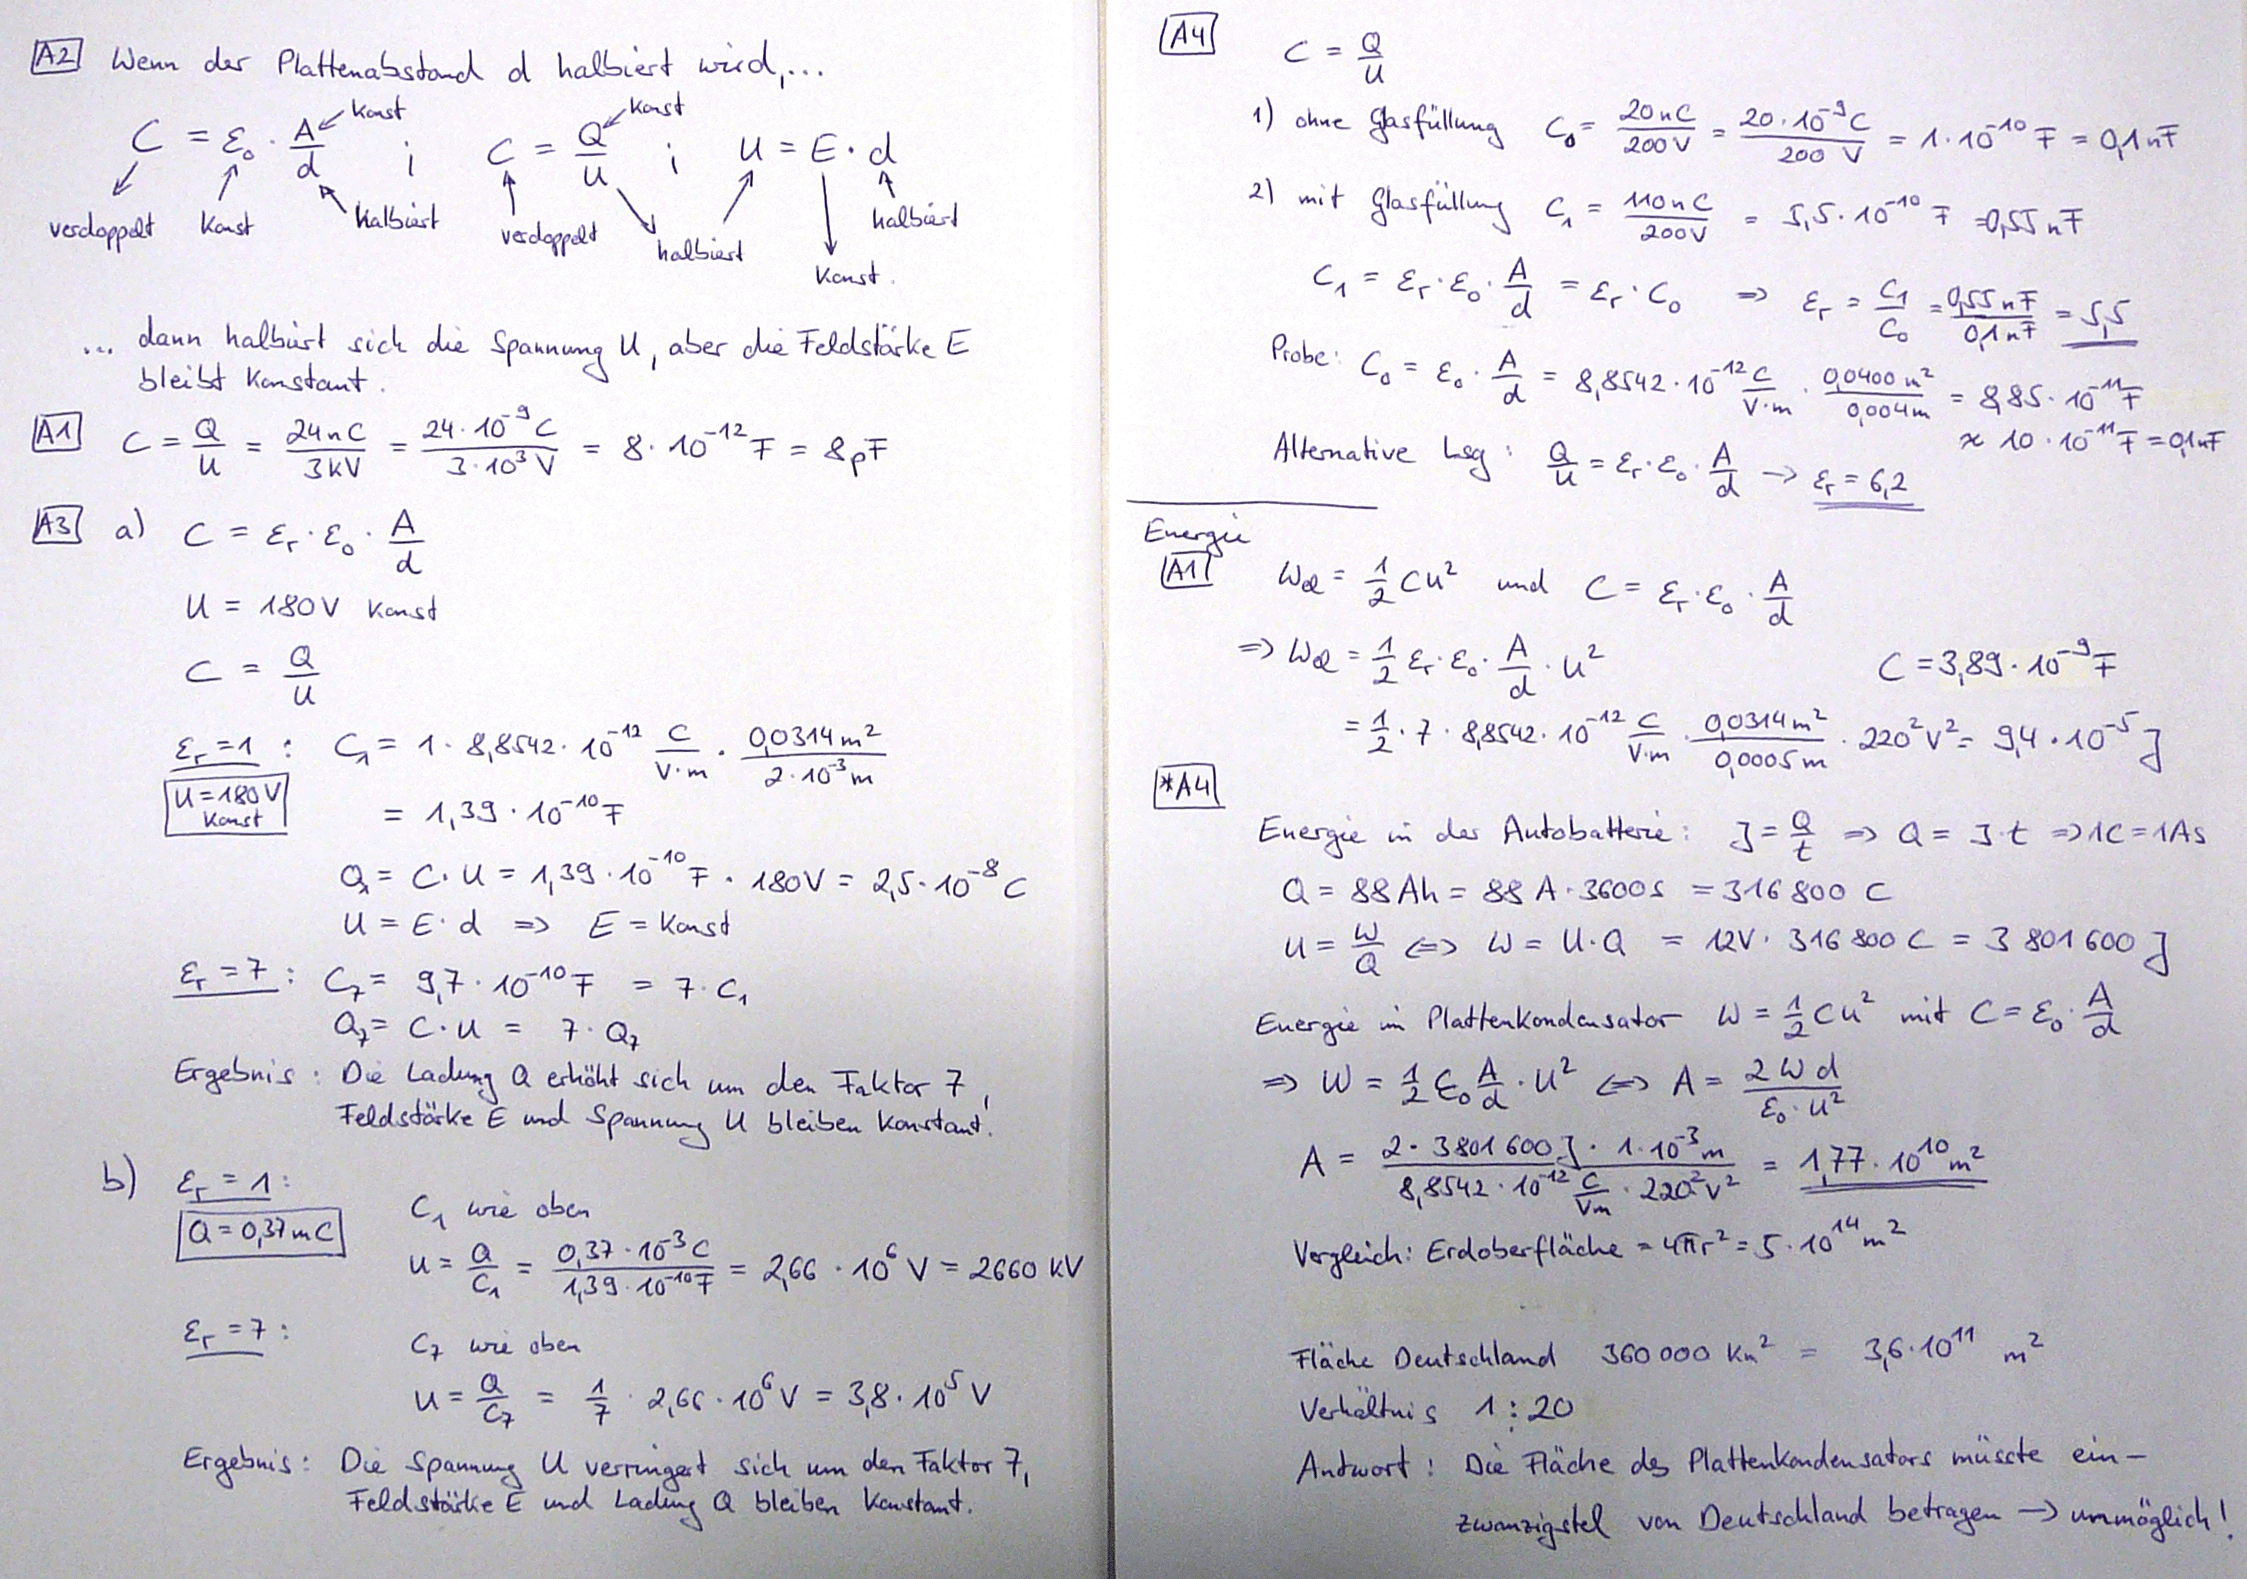 A2 Wenn der Plattenabstand d halbiert wird,...
C = ε₀ · A/d ; C = Q/U ; U = E · d
konst konst
verdoppelt konst halbiert verdoppelt halbiert konst. halbiert
... dann halbiert sich die Spannung U, aber die Feldstärke E
bleibt konstant.
A1 C = Q/U = 24nC/3kV = 24·10⁻⁹C/3·10³V = 8·10⁻¹²F = 8pF
A3 a) C = εᵣ · ε₀ · A/d
U = 180V konst
C = Q/U
εᵣ = 1 : C₁ = 1 · 8,8542 · 10⁻¹² C/V·m · 0,0314m²/2·10⁻³m
U = 180V
konst
= 1,39 · 10⁻¹⁰F
Q₁ = C · U = 1,39 · 10⁻¹⁰F · 180V = 2,5 · 10⁻⁸C
U = E · d ⇒ E = konst
εᵣ = 7 : C₇ = 9,7 · 10⁻¹⁰F = 7 · C₁
Q₇ = C · U = 7 · Q₇
Ergebnis : Die Ladung Q erhöht sich um den Faktor 7,
Feldstärke E und Spannung U bleiben konstant.
b) εᵣ = 1 :
Q = 0,37mC
C₁ wie oben
U = Q/C₁ = 0,37·10⁻³C/1,39·10⁻¹⁰F = 2,66 · 10⁶ V = 2660 kV
εᵣ = 7 :
C₇ wie oben
U = Q/C₇ = 1/7 · 2,66 · 10⁶V = 3,8 · 10⁵ V
Ergebnis : Die Spannung U verringert sich um den Faktor 7,
Feldstärke E und Ladung Q bleiben konstant.
A4 C = Q/U
1) ohne Glasfüllung C₀ = 20nC/200V = 20·10⁻⁹C/200 V = 1·10⁻¹⁰ F = 0,1nF
2) mit Glasfüllung C₁ = 110nC/200V = 5,5·10⁻¹⁰ F = 0,55nF
C₁ = εᵣ · ε₀ · A/d = εᵣ · C₀ ⇒ εᵣ = C₁/C₀ = 0,55nF/0,1nF = 5,5
Probe : C₀ = ε₀ · A/d = 8,8542 · 10⁻¹² C/V·m · 0,0400m²/0,004m = 8,85 · 10⁻¹¹F
≈ 10 · 10⁻¹¹F = 0,1nF
Alternative Lsg : Q/U = εᵣ · ε₀ · A/d → εᵣ = 6,2
Energie
A1 Wel = 1/2 CU² und C = εᵣ · ε₀ · A/d
⇒ Wel = 1/2 εᵣ · ε₀ · A/d · U² C = 3,89 · 10⁻⁹F
= 1/2 · 7 · 8,8542 · 10⁻¹² C/V·m · 0,0314m²/0,0005m · 220²V² = 9,4 · 10⁻⁵J
*A4
Energie in der Autobatterie : J = Q/t ⇒ Q = J · t ⇒ 1C = 1As
Q = 88Ah = 88 A · 3600s = 316 800 C
U = W/Q ⇔ W = U · Q = 12V · 316 800 C = 3 801 600 J
Energie im Plattenkondensator W = 1/2 CU² mit C = ε₀ · A/d
⇒ W = 1/2 ε₀ A/d · U² ⇔ A = 2Wd/ε₀ · U²
A = 2 · 3801 600J · 1·10⁻³m/8,8542 · 10⁻¹² C/Vm · 220²V² = 1,77 · 10¹⁰m²
Vergleich : Erdoberfläche = 4πr² = 5 · 10¹⁴ m²
Fläche Deutschland 360 000 km² = 3,6 · 10¹¹ m²
Verhältnis 1 : 20
Antwort : Die Fläche des Plattenkondensators müsste ein-
zwanzigstel von Deutschland betragen → unmöglich!